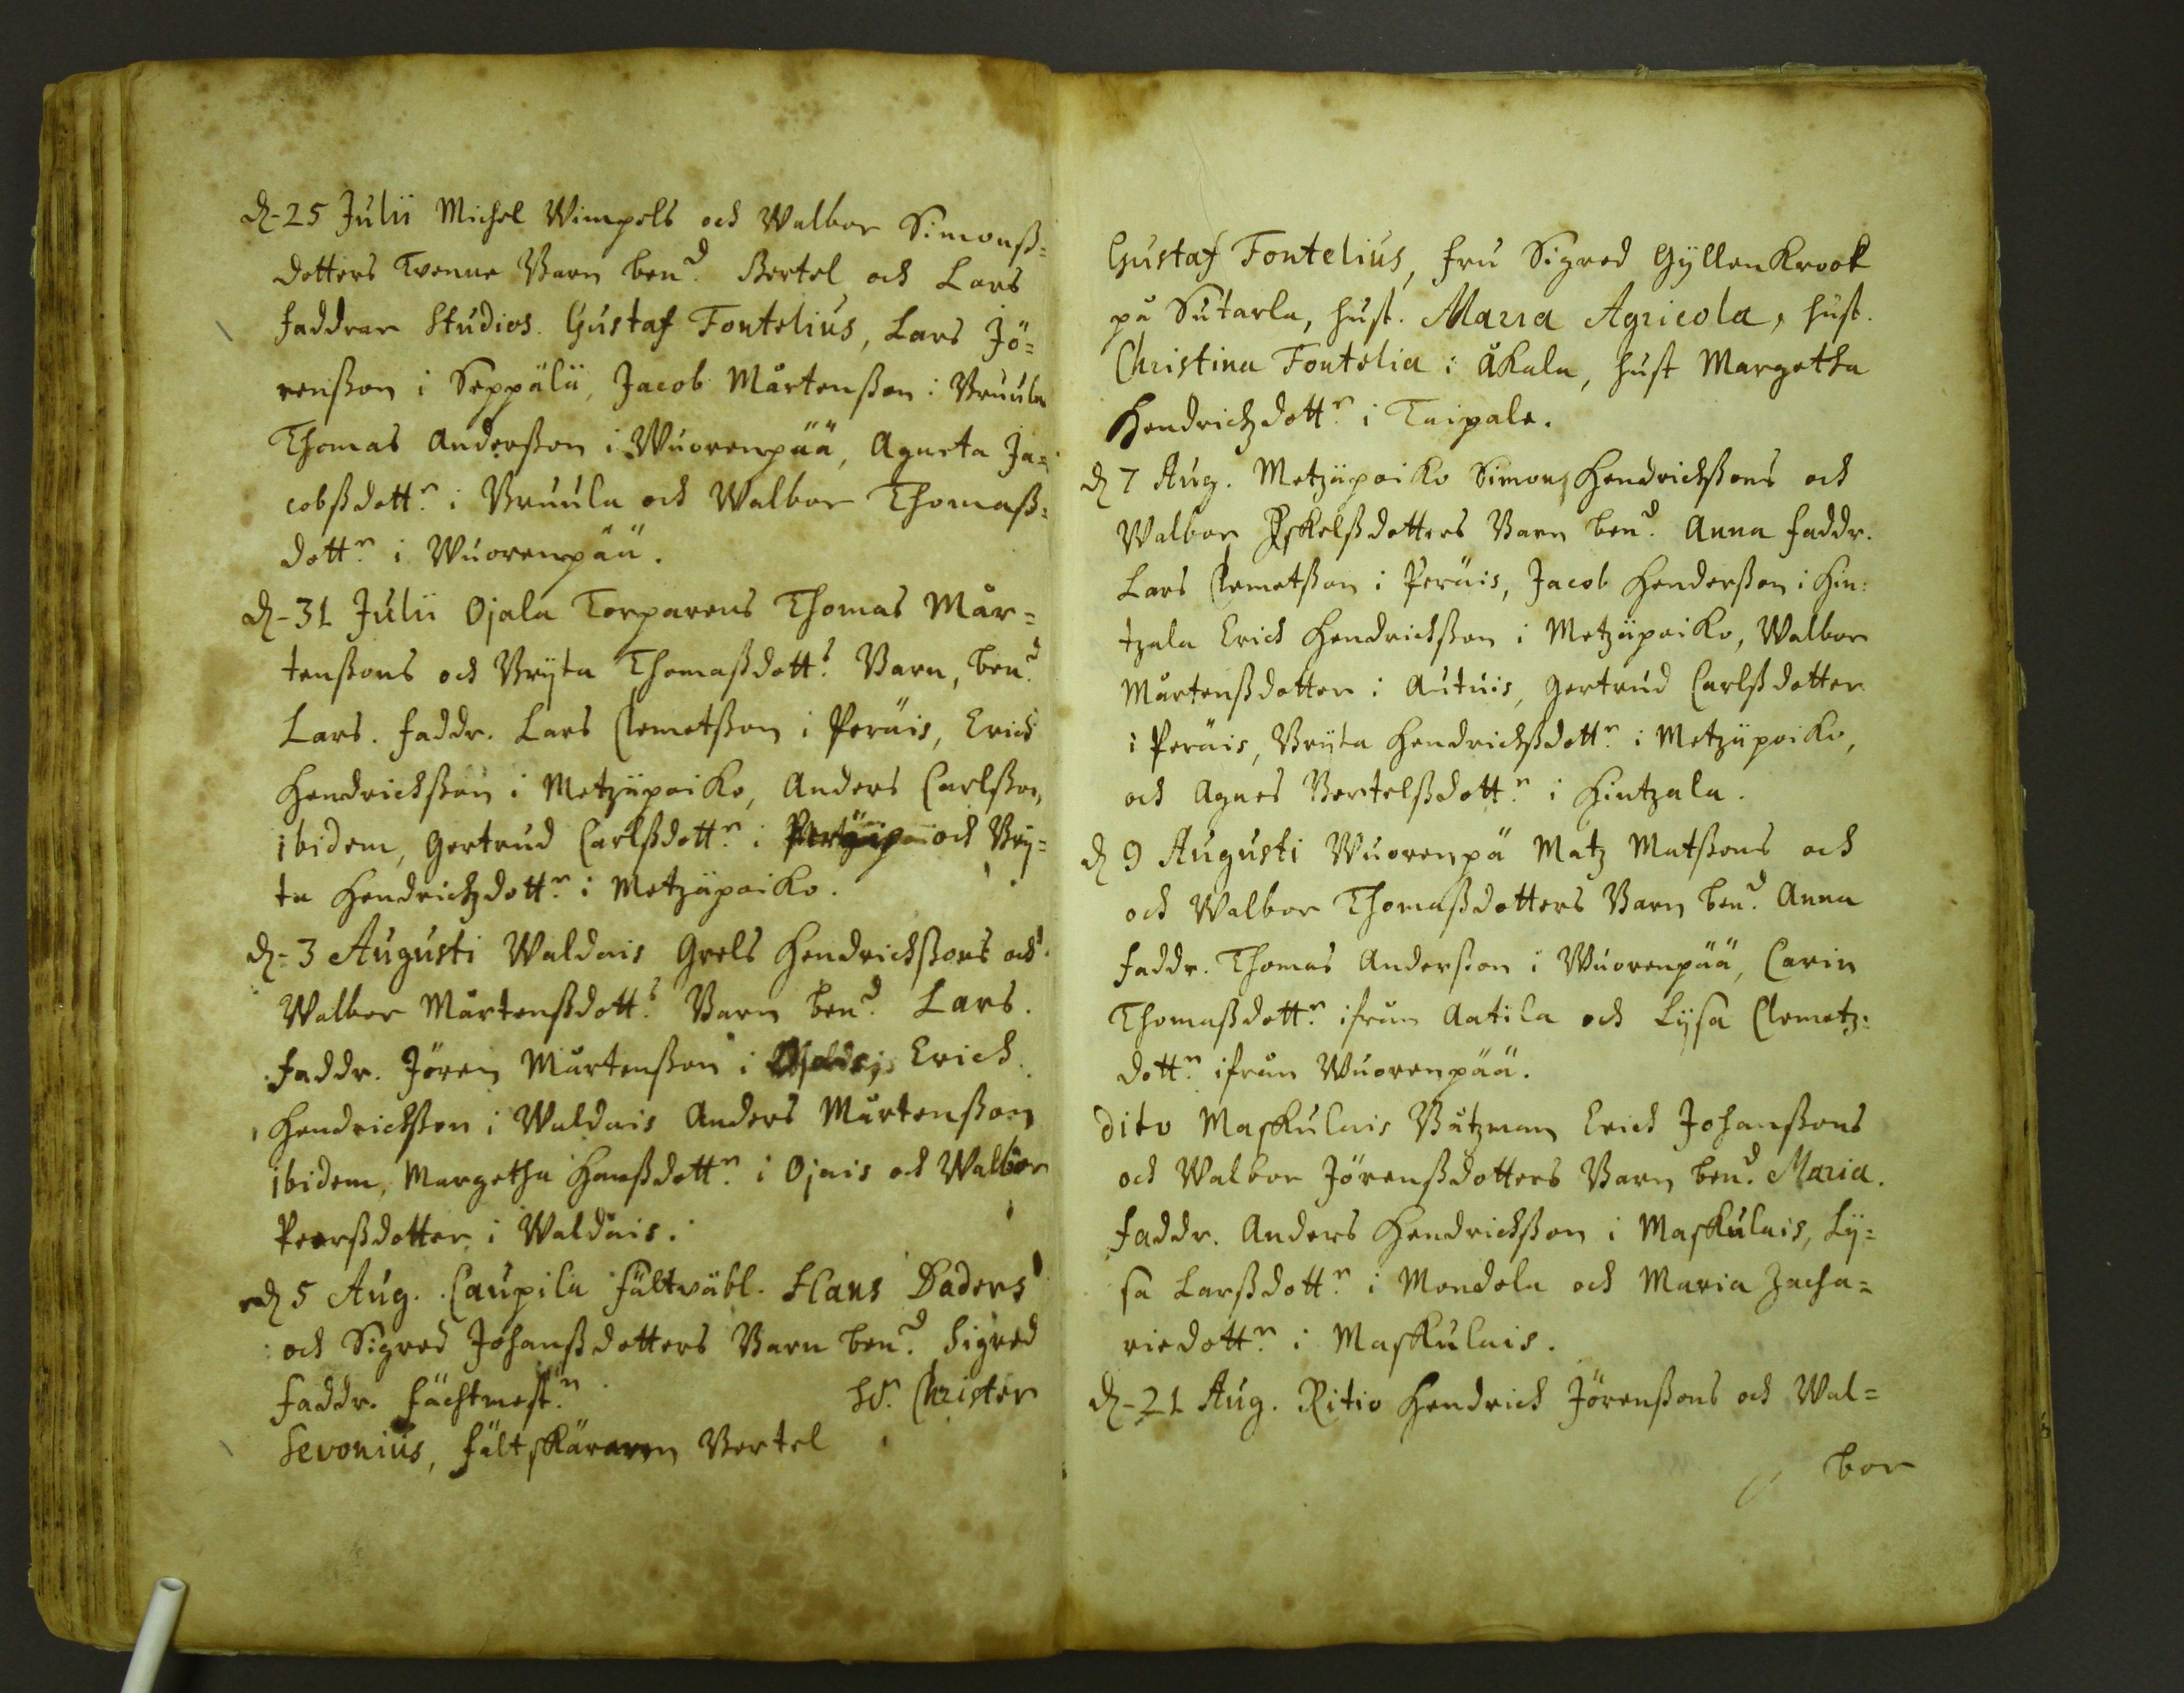 d. 25 Julii Michel Wimpels och Walbor Simonß=
dotters Tvenne Barn ben.d Bertel och Lars
faddrar Studios. Gustaf Fontelius, Lars Jö=
renßon i Seppälä, Jacob Mårtenßon i Bruula
Thomas Anderßon i Wuorenpää, Agneta Ja=
cobßdott.r i Bruula och Walbor Thomaß=
dott.r i Wuorenpää.
d. 31 Julii Ojala Torparens Thomas Mår=
tenßons och Brijta Thomaßdott.s Barn, ben.d
Lars. faddr. Lars Clemetßon i Peräis, Erich
Hendrichßon i Metzäpoiko, Anders Carlßon
ibidem, Gertrud Carlßdott.r i och Brij=
ta Hendrichzdott.r i Metzäpoiko.
d. 3 Augusti Waldais Grels Hendrichßons och
Walbor Mårtenßdott.s Barn ben.d Lars.
faddr. Jören Mårtenßon i Erich
Hendrichßon i Waldais Anders Mårtenßon
ibidem, Margetha Hanßdott.r i Ojais och Walbor
Peerßdotter i Waldais.
d. 5 Aug. Caupila fältwäbl. Hans Daders
och Sigred Johanßdotters Barn ben.d Sigred
faddr. fächtmest.r H.r Christer
Sevonius, fältskäraren Bertel
Gustaf Fontelius, fru Sigred Gyllenkrook
på Sutarla, hust. Maria Agricola, hust.
Christina Fontelia i Åkala, hust Margetha
Hendrichzdott.r i Taipale.
d. 7 Aug. Metzäpoiko Simon Hendrichßons och
Walbor Eskelßdotters Barn ben.d Anna faddr.
Lars Clemetßon i Peräis, Jacob Henderßon i Hin=
tzala Erich Hendrichßon i Metzäpoiko, Walbor
Mårtenßdotter i Autuis, Gertrud Carlßdotter
i Peräis, Brijta Hendrichßdott.r i Metzäpoiko,
och Agnes Bertelßdott.r i Hintzala.
d. 9 Augusti Wuorenpä Matz Matßons och
och Walbor Thomaßdotters Barn ben.d Anna
faddr. Thomas Anderßon i Wuorenpää, Carin
Thomaßdott.r ifrån Aatila och Lijsa Clemetz=
dott.r ifrån Wuorenpää.
dito Maskulais Båtzman Erich Johanßons
och Walbor Jörenßdotters Barn ben.d Maria.
faddr. Anders Hendrichßon i Maskulais, Lij=
sa Larßdott.r i Mondola och Maria Zacha=
riedott.r i Maskulais.
d. 21 Aug. Ritio Hendrich Jörenßons och Wal=
bor